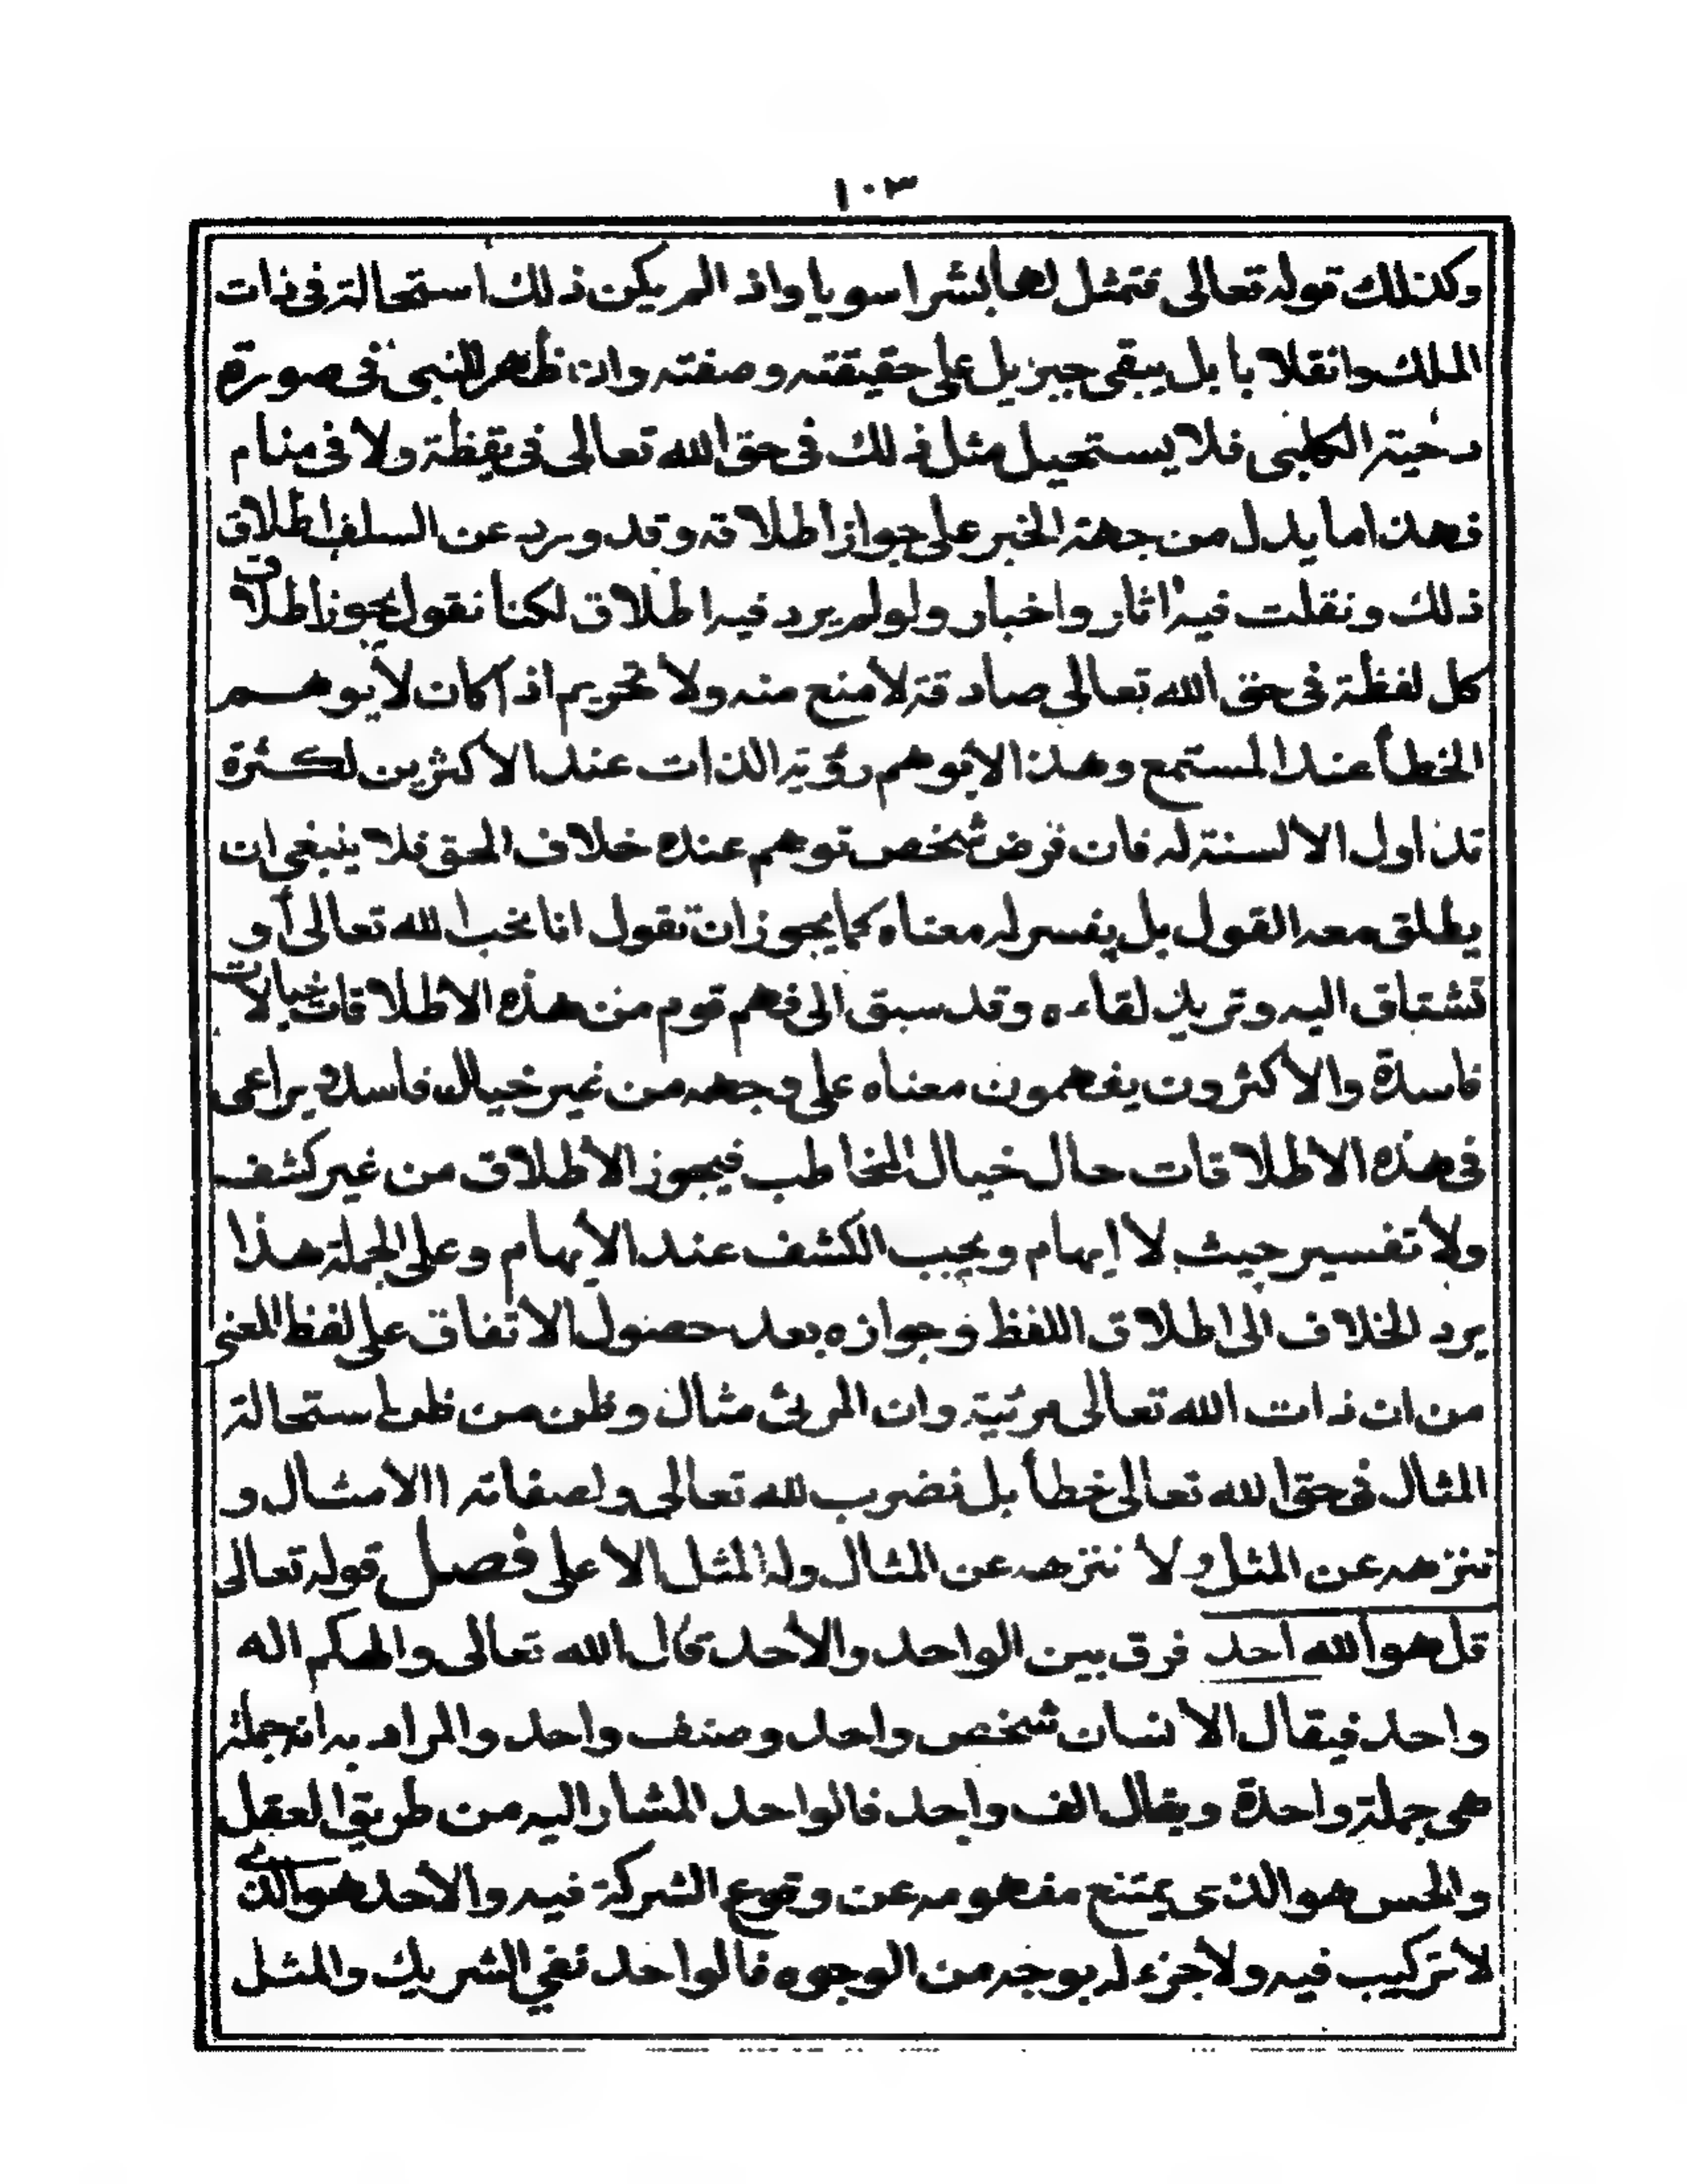 ١٠٣
وكذلك قوله تعالى فتمثل لها بشرا سويا واذ المريكن ذلك استحالة فى ذات
الملك وانقلا با بل يبقى جبريل على حقيقته وصفته وان ظهر للنبى فى صورة
دحية الكلبى فلا يستحيل مثل ذلك فى حق الله تعالى فى يقظة ولا فى منام
فهذا ما يدل من جهة الخبر على جواز اطلاقه وقد ورد عن السلف اطلاق
ذلك ونقلت فيه اثار واخبار ولولم يرد فيه اطلاق لكنا نقول يجوز اطلاق
كل لفظة فى حق الله تعالى صادقة لامنع منه ولا تحريم اذا كان لا يوهم
الخطأ عند المستمع وهذا لايوهم رؤية الذات عند الاكثرين لكثرة
تداول الالسنة له فان فرض شخص توهم عنده خلاف الحق فلا ينبغى ان
يطلق معه القول بل يفسر له معناه كما يجوز ان نقول انا نحب الله تعالى أو
نشتاق اليه ونريد لقاءه وقد سبق الى فهم قوم من هذه الاطلاقات خيالات
فاسدة والاكثرون يفهمون معناه على وجهه من غير خيال فاسد ويراعى
فى هذه الاطلاقات حال خيال المخاطب فيجوز الاطلاق من غير كشف
ولا تفسير حيث لا ايهام ويجب الكشف عند الايهام وعلى الجملة هذا
يرد الخلاف الى اطلاق اللفظ وجوازه بعد حصول الاتفاق على لفظ المعنى
من ان ذات الله تعالى مرئية وان المرئى مثال وظن من ظن استحالة
المثال فى حق الله تعالى خطأ بل نضرب لله تعالى ولصفاته الامثال و
ننزهه عن المثل ولا ننزهه عن المثال وله المثل الاعلى فصل قوله تعالى
قل هو الله احد فرق بين الواحد والأحد قال الله تعالى والهكم اله
واحد فيقال الانسان شخص واحد وصنف واحد والمراد به انه جملة
هى جملة واحدة ويقال الف واحد فالواحد المشار اليه من طريق العقل
والحس هو الذى يمتنع مفهومه عن وقوع الشركة فيه والأحد هو الذى
لا تركيب فيه ولا جزء له بوجه من الوجوه فالواحد نفي الشريك والمثل